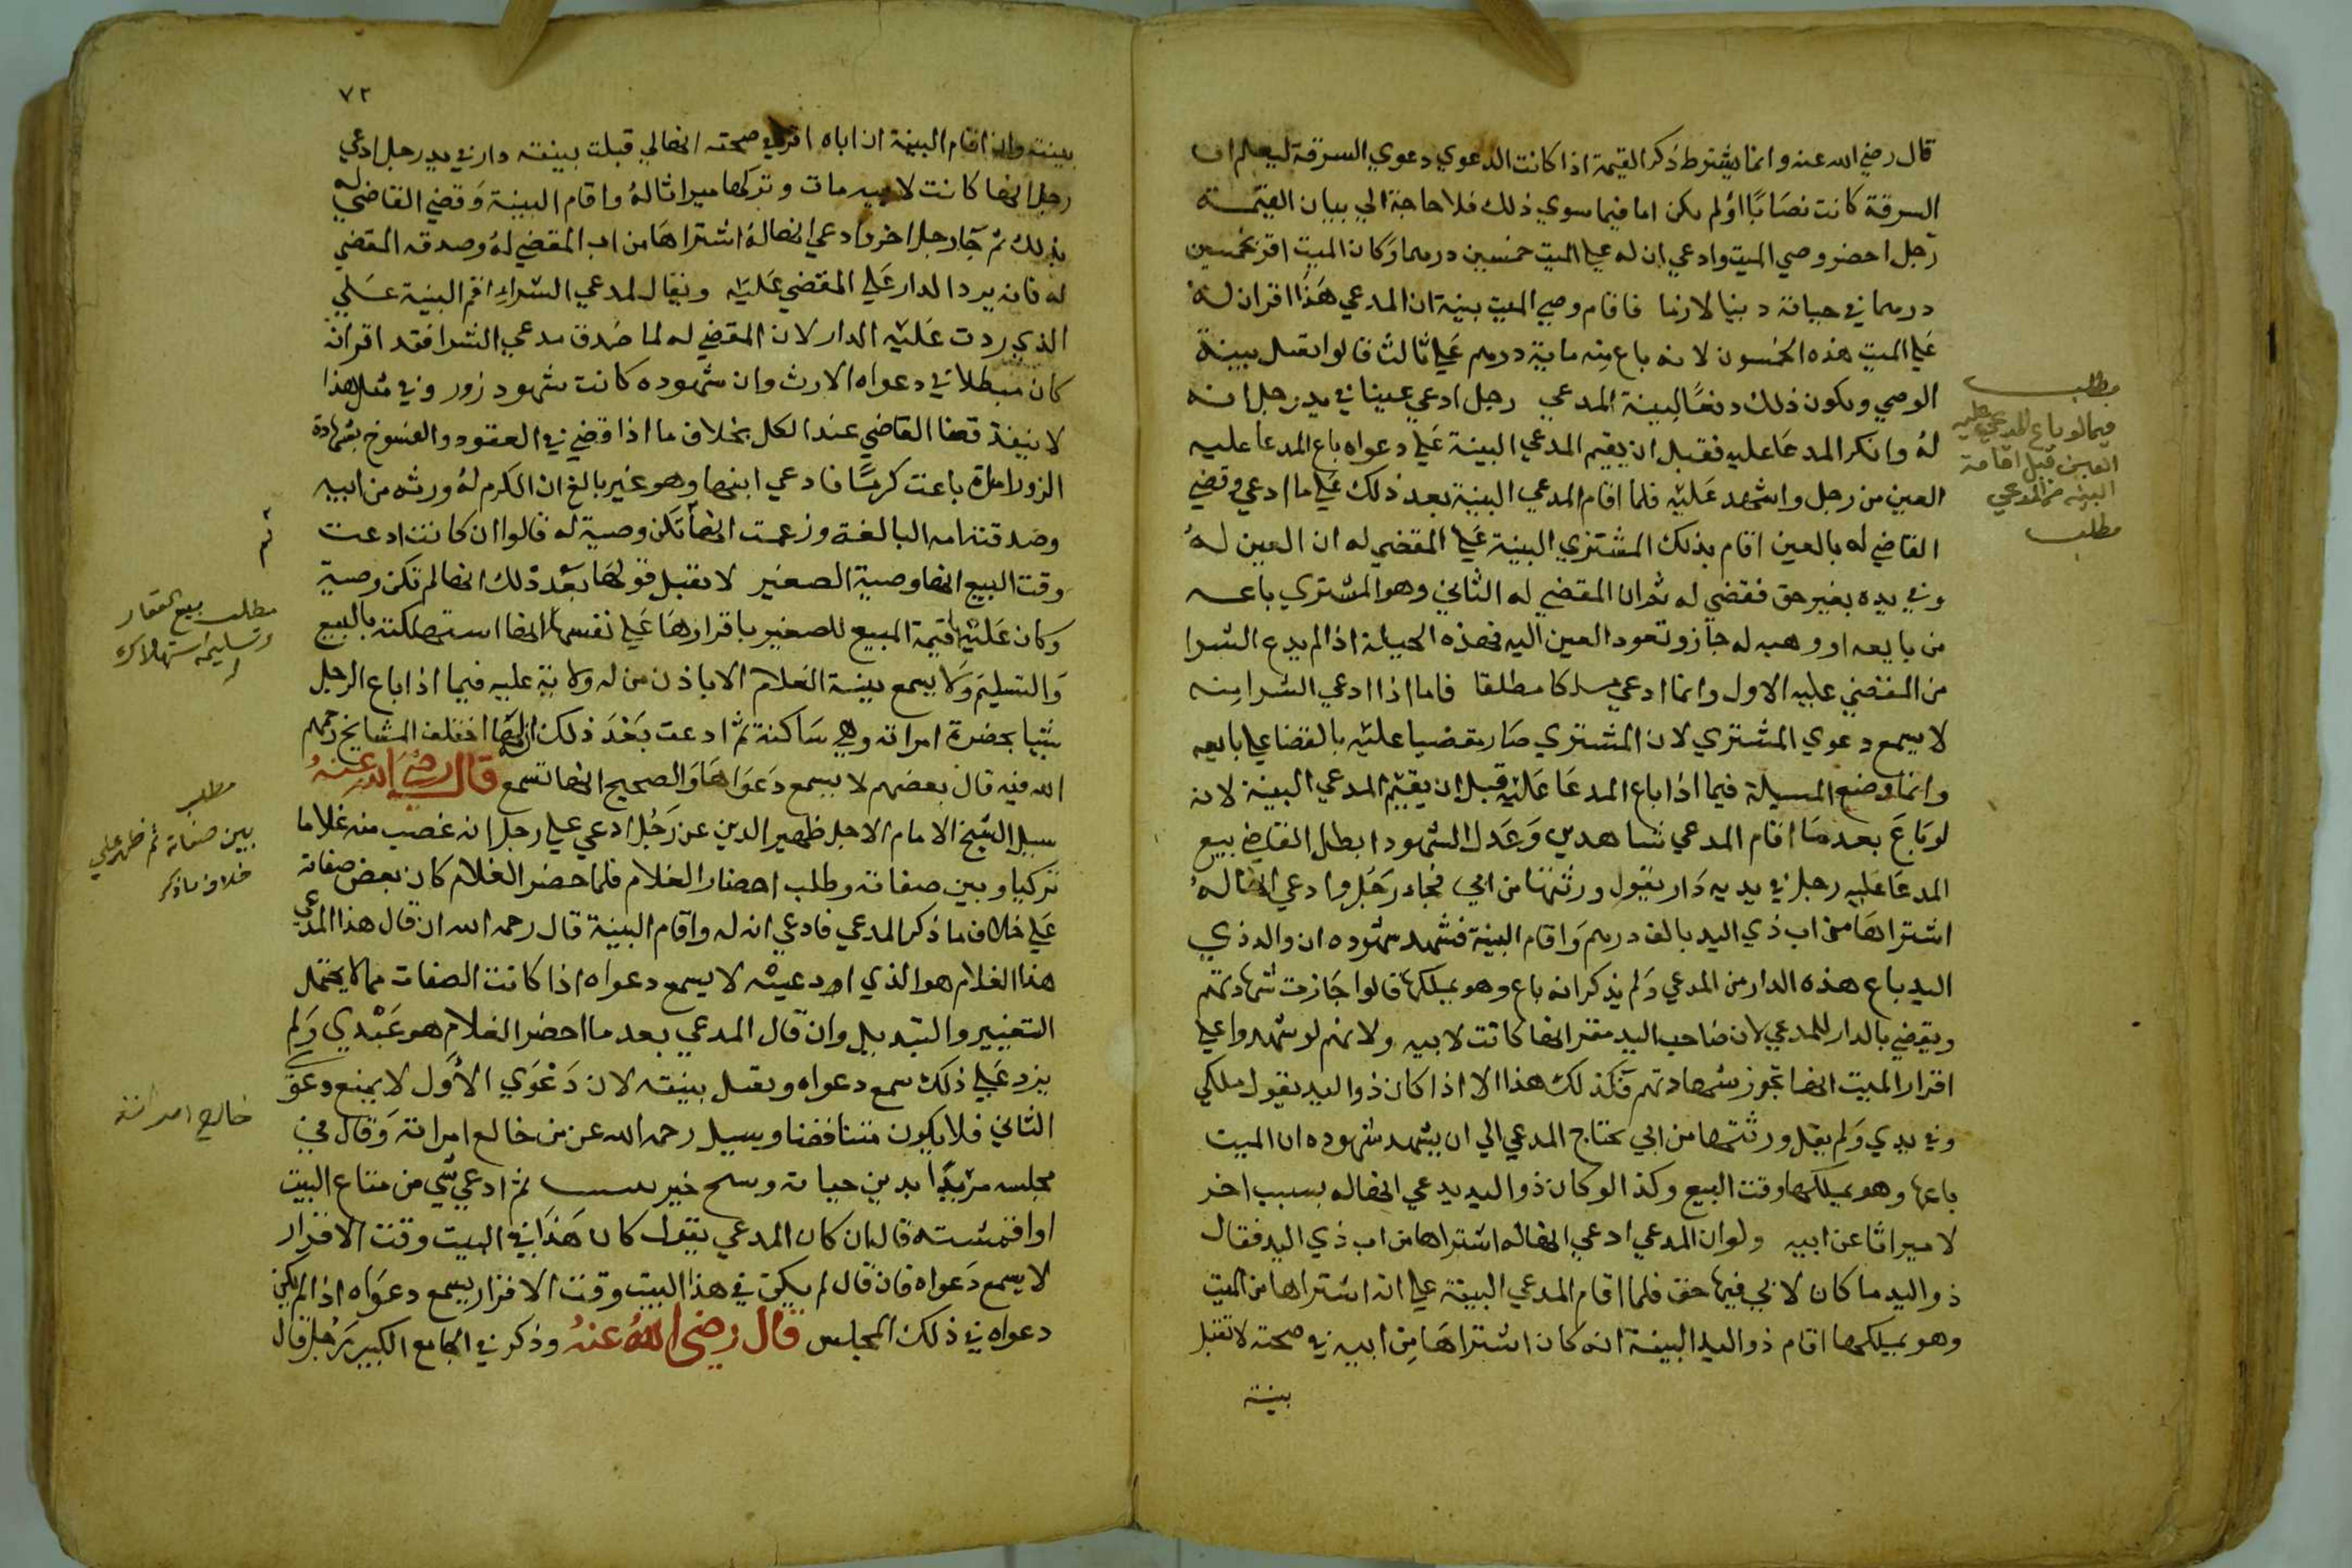 قال رضي الله عنه وانما يشترط ذكر القيمة اذا كانت الدعوي دعوي السرقة ليعلم ان
السرقة كانت نصابا اولم يكن اما فيما سوي ذلك فلا حاجة الي بيان القيمة
رجل احضر وصي الميت وادعي ان له علي الميت خمسين درهما وكان الميت اقر بخمسين
درهما في حياته دينا لازما فاقام وصي الميت بينة ان المدعي هذا اقر ان له
علي الميت هذه الخمسون لانه باع منه ماية درهم علي ثالث قالوا تقبل بينة
الوصي ويكون ذلك دفعا لبينة المدعي رجل ادعي عينا في يد رجل انه
له وانكر المدعا عليه فقبل ان يقيم المدعي البينة علي دعواه باع المدعا عليه
العين من رجل واشهد عليه فلما اقام المدعي البينة بعد ذلك علي ما ادعي وقضي
القاضي له بالعين اقام بذلك المشتري البينة علي المقضي له ان العين له
وفي يده بغير حق فقضي له ثم ان المقضي له الثاني وهو المشتري باعه
من بايعه او وهبه له جاز وتعود العين اليه فهذه الحيلة اذا لم يدع الشرا
من المقضي عليه الاول وانما ادعي ملكا مطلقا فاما اذا ادعي الشرا منه
لا يسمع دعوي المشتري لان المشتري صار مقضيا عليه بالقضا علي بايعه
وانما وضع المسيلة فيما اذا باع المدعا عليه قبل ان يقيم المدعي البينة لانه
لو باع بعد ما اقام المدعي شاهدين وعدل الشهود ابطل القاضي بيع
المدعا عليه رجل في يديه دار يقول ورثتها من ابي فجاء رجل وادعي انها له
اشتراها من اب ذي اليد بالف درهم واقام البينة فشهد شهوده ان والد ذي
اليد باع هذه الدار من المدعي ولم يذكر انه باع وهو يملكها قالوا جازت شهادتهم
ويقضي بالدار للمدعي لان صاحب اليد مقر انها كانت لابيه ولانهم لو شهدوا علي
اقرار الميت انها تجوز شهادتهم فكذلك هذا الا اذا كان ذو اليد يقول ملكي
وفي يدي ولم يقل ورثتها من ابي يحتاج المدعي الي ان يشهد شهوده ان الميت
باعها وهو يملكها وقت البيع وكذا لو كان ذو اليد يدعي انها له بسبب اخر
لا ميراثا عن ابيه ولو ان المدعي ادعي انها له اشتراها من اب ذي اليد فقال
ذو اليد ما كان لابي فيها حق فلما اقام المدعي البينة علي انه اشتراها من الميت
وهو يملكها اقام ذو اليد البينة انه كان اشتراها من ابيه في صحته لا تقبل
بينة
مطلب
فيما لو باع المدعي عليه
العين قبل اقامة
البينة من المدعي
مطلب
٧٢
بينته وان اقام البينة ان اباه اقر في صحته انها لي قبلت بينته دار في يد رجل ادعي
رجل انها كانت لابيه مات وتركها ميراثا له واقام البينة وقضي القاضي له
بذلك ثم جا رجل اخر وادعي انها له اشتراها من اب المقضي له وصدقه المقضي
له فانه يرد الدار علي المقضي عليه ويقال لمدعي الشراء اقم البينة علي
الذي ردت عليه الدار لان المقضي له لما صدق مدعي الشرا فقد اقر انه
كان مبطلا في دعواه الارث وان شهوده كانت شهود زور وفي مثل هذا
لا ينفذ قضا القاضي عند الكل بخلاف ما اذا قضي في العقود والفسوخ بشهادة
الزور امراة باعت كرما فادعي ابنها وهو غير بالغ ان الكرم له ورثه من ابيه
وصدقته امه البالغة وزعمت انها تكن وصية له قالوا ان كانت ادعت
لم
وقت البيع انها وصية الصغير لا يقبل قولها بعد ذلك انها لم تكن وصية
وكان عليها قيمة المبيع للصغير باقرارها علي نفسها انها استهلكته بالبيع
والتسليم ولا يسمع بينة الغلام الا باذن من له ولاية عليه فيما اذا باع الرجل
شيا بحضرة امراته وهي ساكتة ثم ادعت بعد ذلك انه لها اختلف المشايخ رحمهم
الله فيه قال بعضهم لا يسمع دعواها والصحيح انها تسمع قال رضي الله عنه
سيل الشيخ الامام الاجل ظهير الدين عن رجل ادعي علي رجل انه غصب منه غلاما
تركيا وبين صفاته وطلب احضار الغلام فلما حضر الغلام كان بعض صفاته
علي خلاف ما ذكر المدعي فادعي انه له واقام البينة قال رحمه الله ان قال هذا المدعي
هذا الغلام هو الذي ادعيته لا يسمع دعواه اذا كانت الصفات مما لا يحتمل
التغيير والتبديل وان قال المدعي بعد ما احضر الغلام هو عبدي ولم
يزد علي ذلك سمع دعواه وتقبل بينته لان دعوي الاول لا يمنع دعوي
الثاني فلا يكون متناقضا وسيل رحمه الله عن من خالع امراته وقال في
مجلسه ثم ادعي شي من متاع البيت
او اقمشته قال ان كان المدعي يقول كان هذا في البيت وقت الاقرار
لا يسمع دعواه فان قال لم يكن في هذا البيت وقت الاقرار يسمع دعواه اذا لم يكن
دعواه في ذلك المجلس قال رضي الله عنه وذكر في الجامع الكبير رجل قال
مطلب بيع العقار
وتسليمه استهلاك
مطلب
بين صفاته ثم ظهر علي
خلاف ما ذكر
خالع امراته